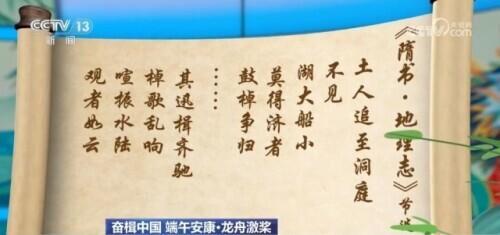 CCTV 13
新闻
央视网
com
《隋书·地理志》节选
土人追至洞庭
不见
湖大船小
莫得济者
鼓棹争归
……
其迅楫齐驰
棹歌乱响
喧振水陆
观者如云
奋楫中国 端午安康·龙舟激桨